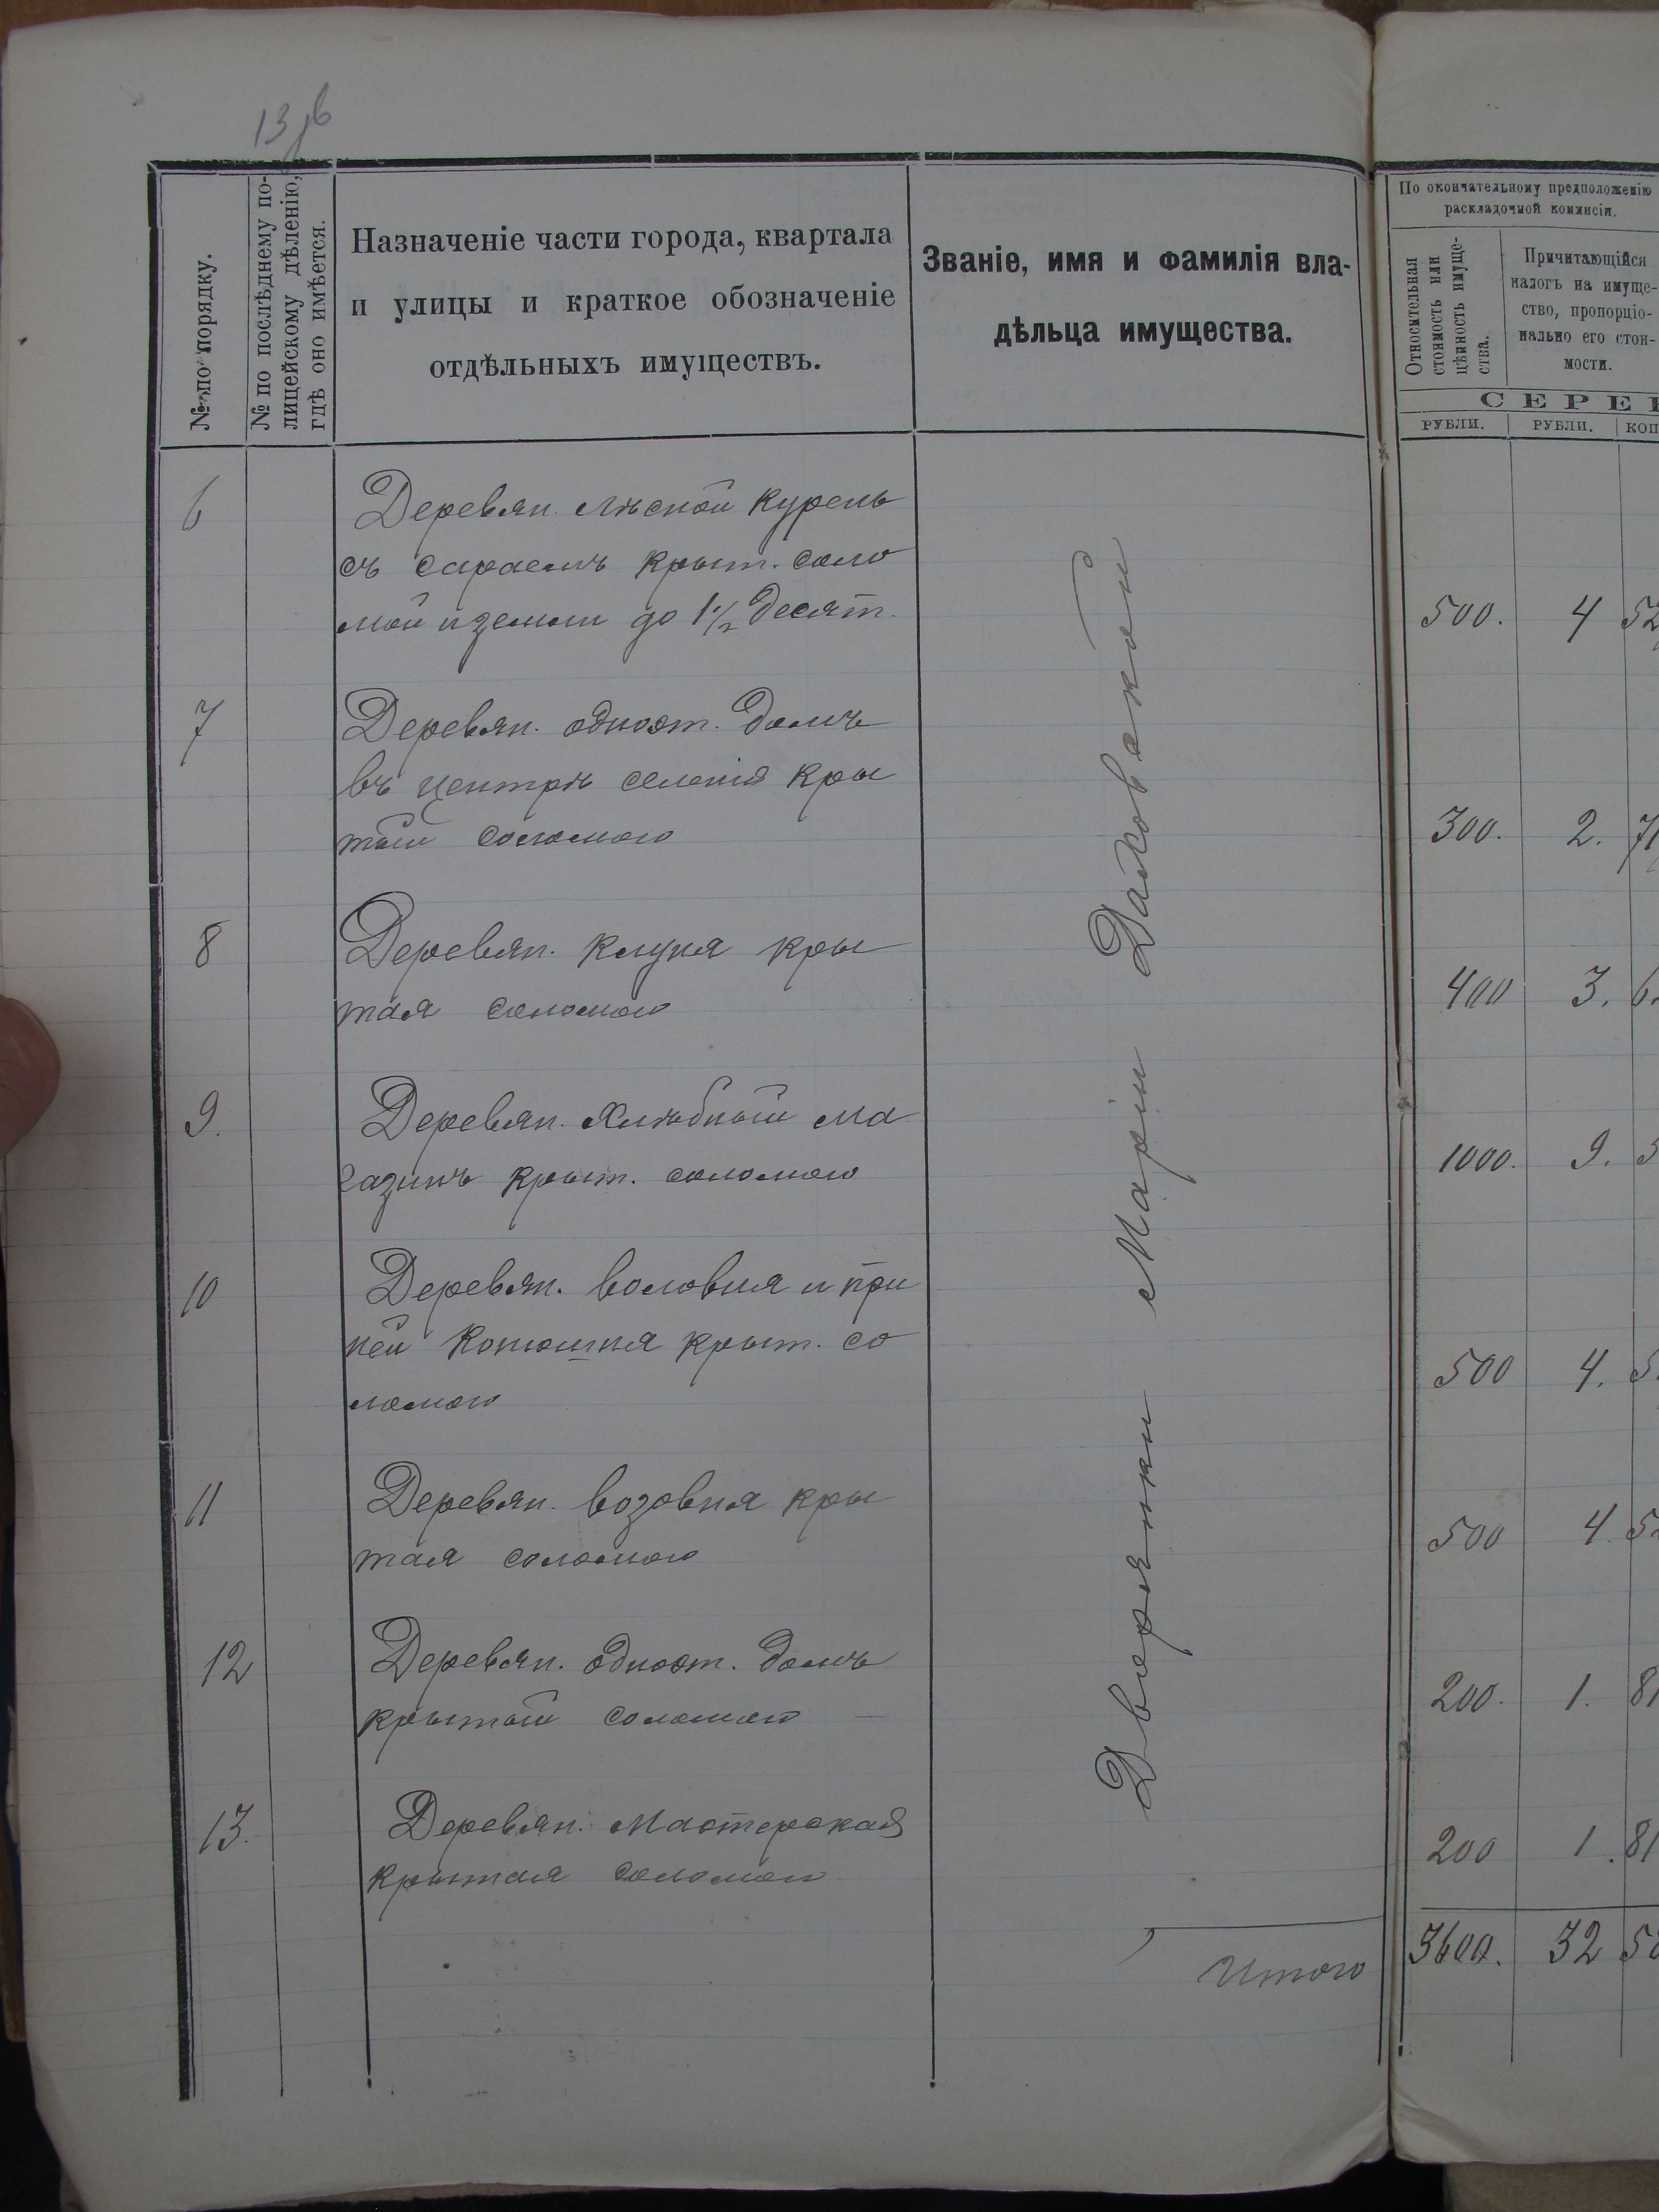 13 об
№ по порядку.
№ по послѣднему по-
лицейскому дѣленію,
гдѣ оно имѣется.
Назначеніе части города, квартала
и улицы и краткое обозначеніе
отдѣльныхъ имуществъ.
Званіе, имя и фамилія вла-
дѣльца имущества.
По окончательному предположенію
раскладочной коммисіи.
Относительная
стоимость или
цѣнность имуще-
ства.
Причитающійся
налогъ на имуще-
ство, пропорціо-
нально его стои-
мости.
СЕРЕ
РУБЛИ.
РУБЛИ.
КОП
6
Деревян. лѣсной курень
съ сараемъ крыт. соло
мой и земли до 1 1/2 десят.
500. 4 52
7
Деревян. одноэт. домъ
въ центрѣ селенія кры
тый соломою
300. 2. 71
8
Деревян. клуня кры
тая соломою
400 3. 6
9.
Деревян. хлѣбный ма
газинъ крыт. соломою
1000. 9.
10
Деревян. воловня и при
ней конюшня крыт. со
ломою
500 4. 5
11
Деревян. возовня кры
тая соломою
500 4. 5
12
Деревян. одноэт. домъ
крытый соломою
200. 1. 81
13.
Деревян. мастерская
крытая соломою
200 1. 81
Дворянки Маріи
Итого
3600. 32 5